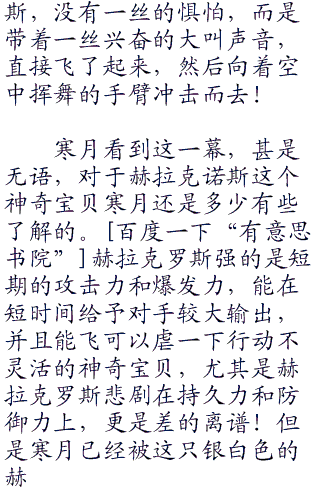 斯，没有一丝的惧怕，而是
带着一丝兴奋的大叫声音，
直接飞了起来，然后向着空
中挥舞的手臂冲击而去！
寒月看到这一幕，甚是
无语，对于赫拉克诺斯这个
神奇宝贝寒月还是多少有些
了解的。[百度一下“有意思
书院”]赫拉克罗斯强的是短
期的攻击力和爆发力，能在
短时间给予对手较大输出，
并且能飞可以虐一下行动不
灵活的神奇宝贝，尤其是赫
拉克罗斯悲剧在持久力和防
御力上，更是差的离谱！但
是寒月已经被这只银白色的
赫